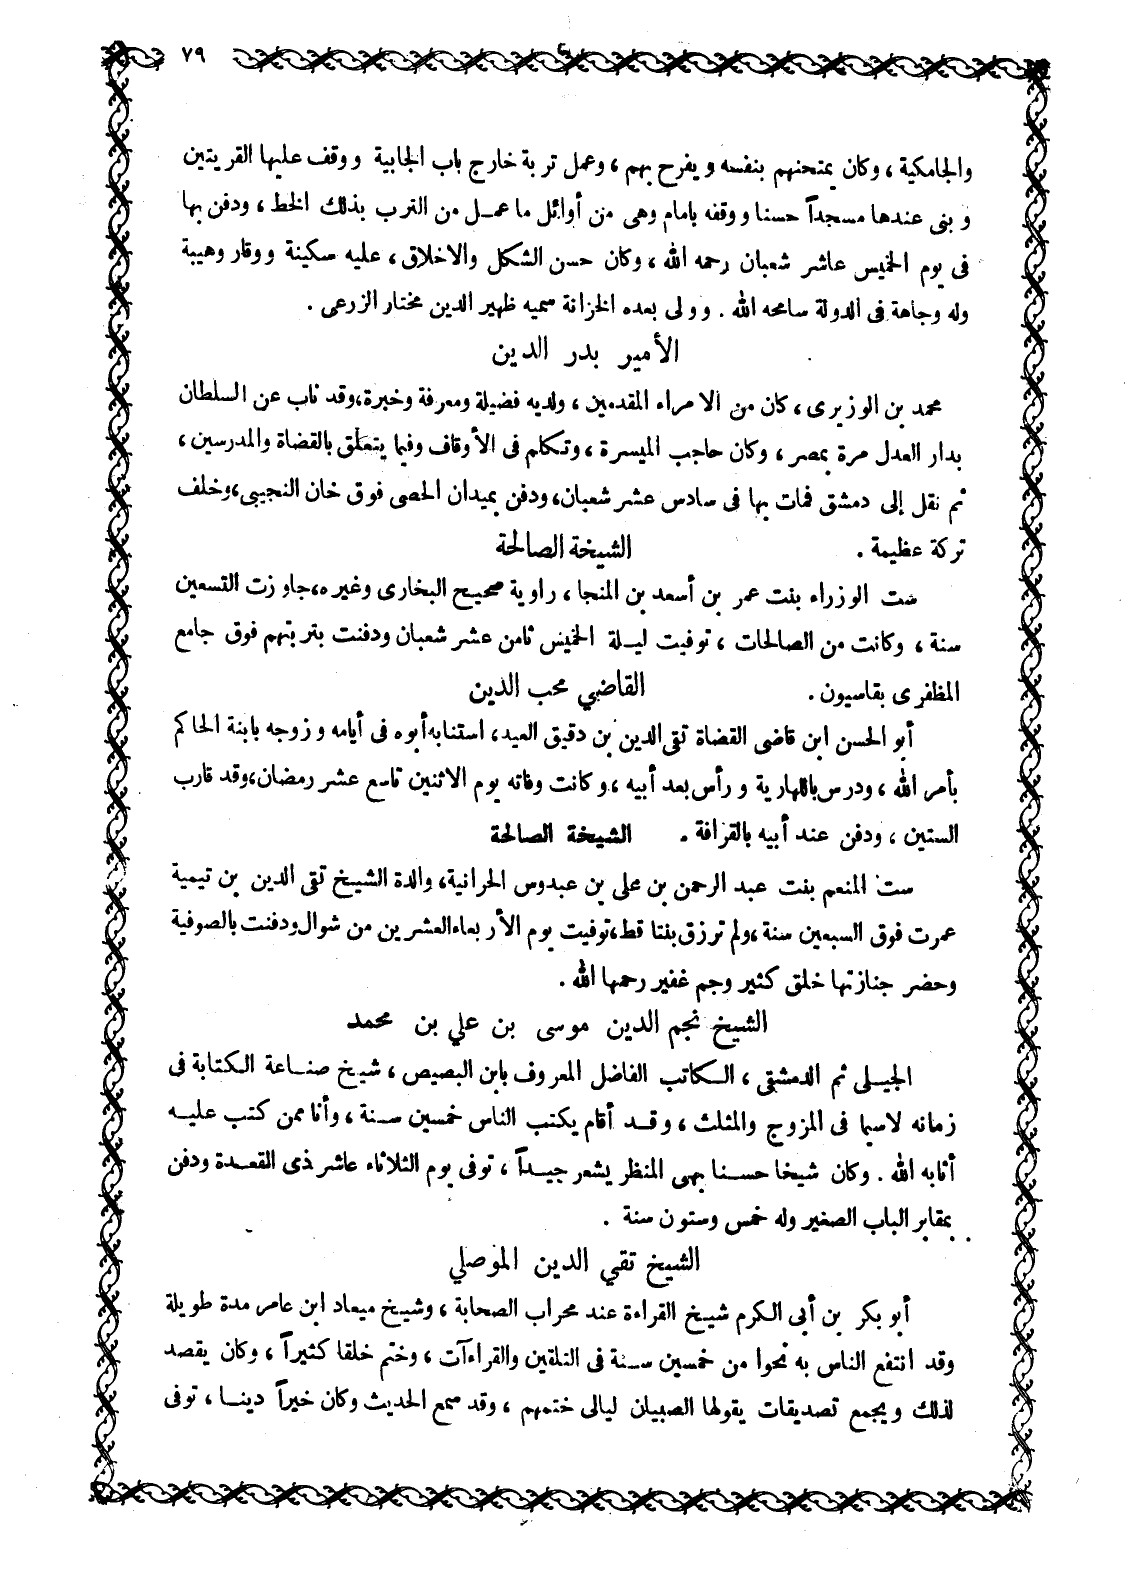 ٧٩
والجامكية ، وكان يمتحنهم بنفسه ويفرح بهم ، وعمل تربة خارج باب الجابية ووقف عليها القريتين
وبنى عندها مسجداً حسنا ووقفه بامام وهى من أوائل ما عمل من الترب بذلك الخط ، ودفن بها
فى يوم الخميس عاشر شعبان رحمه الله ، وكان حسن الشكل والاخلاق ، عليه سكينة ووقار وهيبة
وله وجاهة فى الدولة سامحه الله . وولى بعده الخزانة سميه ظهير الدين مختار الزرعى .
الأمير بدر الدين
محمد بن الوزيرى ، كان من الامراء المقدمين ، ولديه فضيلة ومعرفة وخبرة ، وقد ناب عن السلطان
بدار العدل مرة بمصر ، وكان حاجب الميسرة ، وتكلم فى الأوقاف وفيما يتعلق بالقضاة والمدرسين ،
ثم نقل إلى دمشق فمات بها فى سادس عشر شعبان ، ودفن بميدان الحصى فوق خان النجيبى ، وخلف
تركة عظيمة . الشيخة الصالحة
ست الوزراء بنت عمر بن أسعد بن المنجا ، راوية صحيح البخارى وغيره ، جاوزت التسعين
سنة ، وكانت من الصالحات ، توفيت ليلة الخميس ثامن عشر شعبان ودفنت بتربتهم فوق جامع
المظفرى بقاسيون . القاضي محب الدين
أبو الحسن ابن قاضى القضاة تقى الدين بن دقيق العيد ، استنابه أبوه فى أيامه وزوجه بابنة الحاكم
بأمر الله ، ودرس باللهارية ورأس بعد أبيه ، وكانت وفاته يوم الاثنين تاسع عشر رمضان ، وقد قارب
الستين ، ودفن عند أبيه بالقرافة . الشيخة الصالحة
ست المنعم بنت عبد الرحمن بن على بن عبدوس الحرانية ، والدة الشيخ تقى الدين بن تيمية
عمرت فوق السبعين سنة ، ولم ترزق بنتا قط ، توفيت يوم الأربعاء العشرين من شوال ودفنت بالصوفية
وحضر جنازتها خلق كثير وجم غفير رحمها الله .
الشيخ نجم الدين موسى بن علي بن محمد
الجيلى ثم الدمشقى ، الكاتب الفاضل المعروف بابن البصيص ، شيخ صناعة الكتابة فى
زمانه لاسيما فى المزوج والمثلث ، وقد أقام يكتب الناس خمسين سنة ، وأنا ممن كتب عليه
أثابه الله . وكان شيخا حسنا بهى المنظر يشعر جيداً ، توفى يوم الثلاثاء عاشر ذى القعدة ودفن
بمقابر الباب الصغير وله خمس وستون سنة .
الشيخ تقي الدين الموصلي
أبو بكر بن أبى الكرم شيخ القراءة عند محراب الصحابة ، وشيخ ميعاد ابن عامر مدة طويلة
وقد انتفع الناس به نحوا من خمسين سنة فى التلقين والقراءآت ، وختم خلقا كثيراً ، وكان يقصد
لذلك ويجمع تصديقات يقولها الصبيان ليالى ختمهم ، وقد سمع الحديث وكان خيراً دينا ، توفى